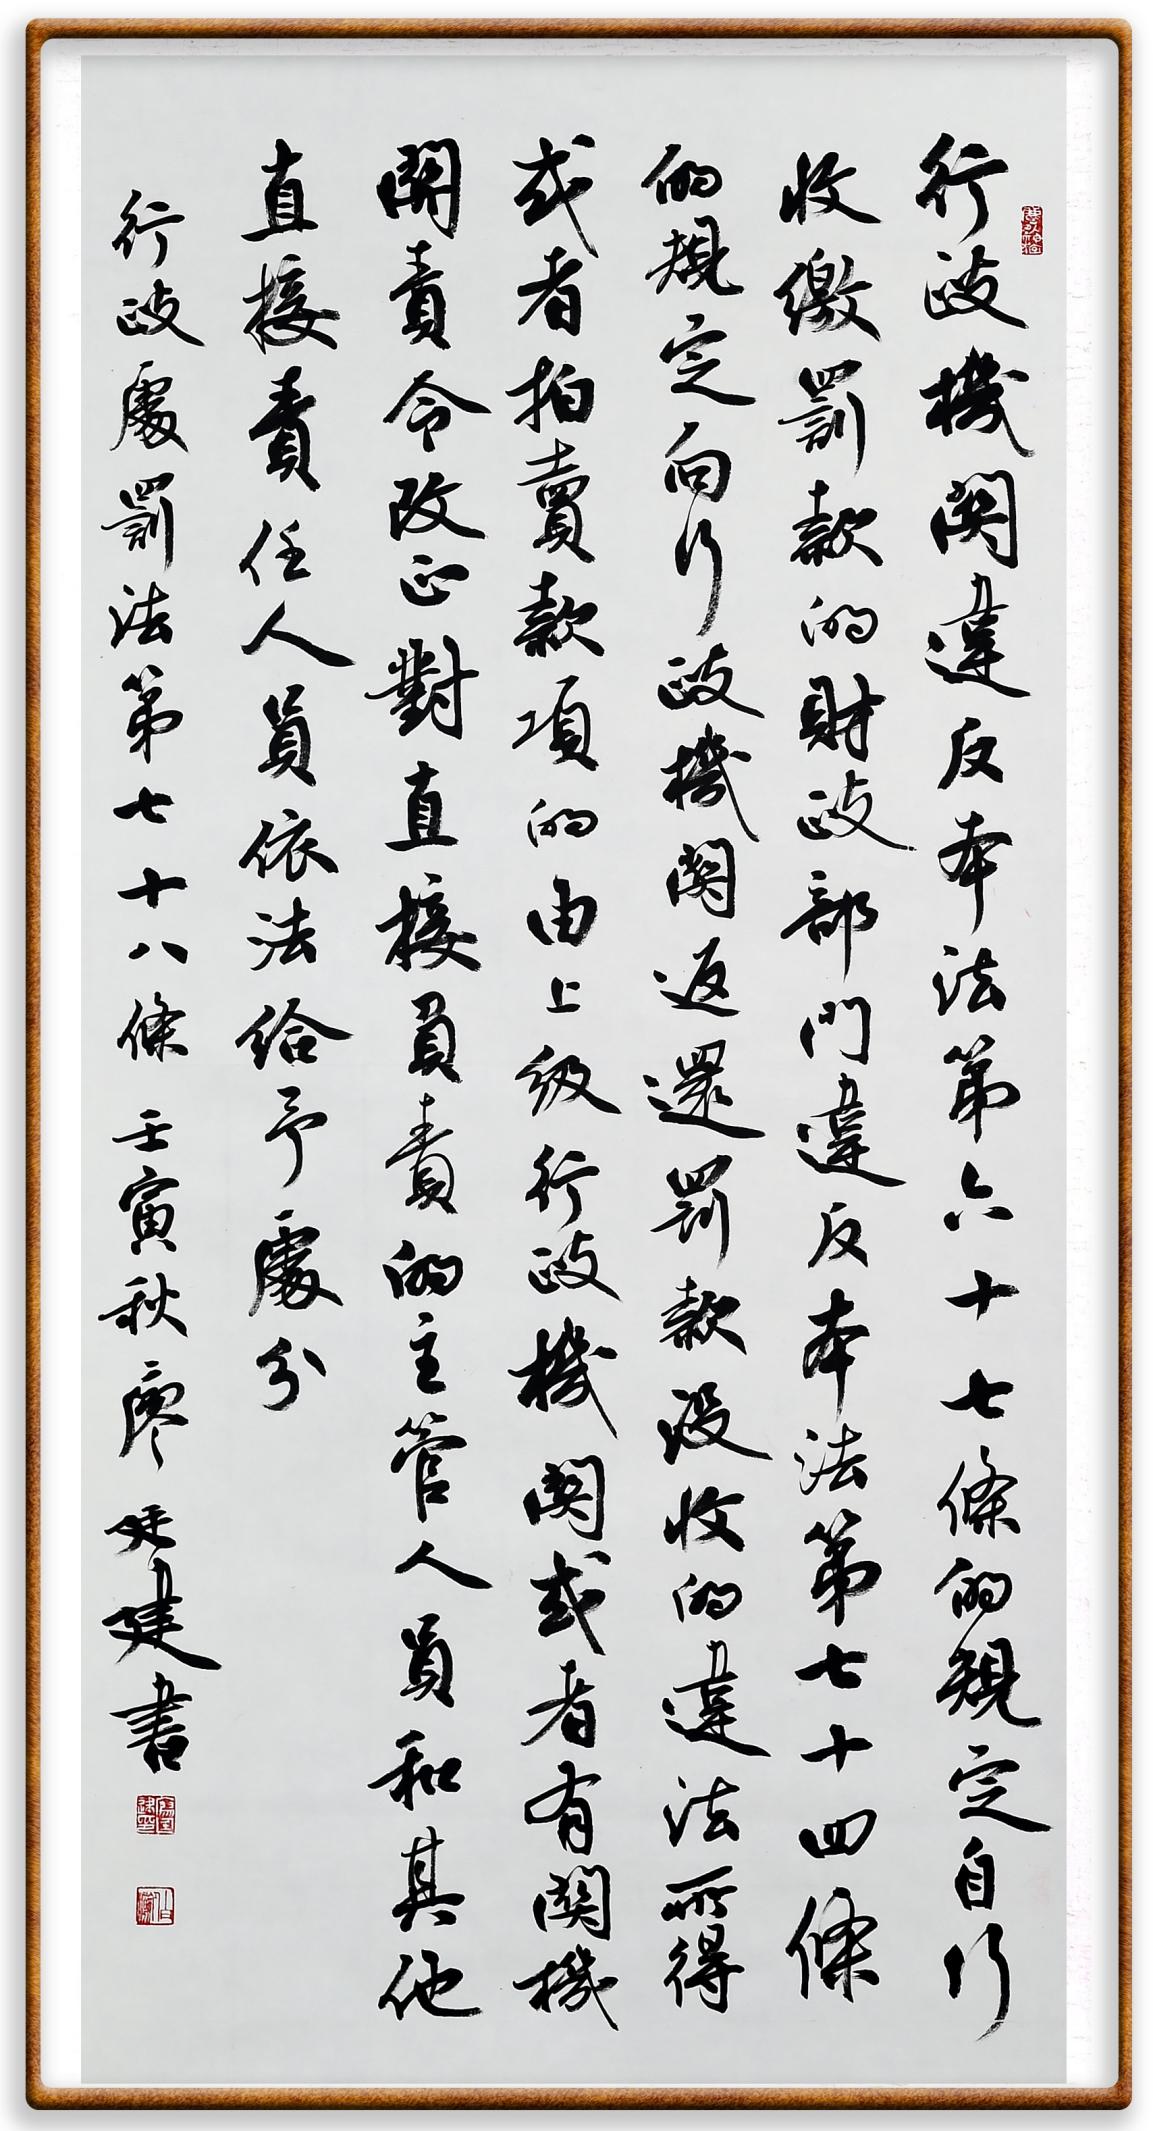 行政機關違反本法第六十七條的規定自行
收繳罰款的財政部門違反本法第七十四條
的規定向行政機關返還罰款沒收的違法所得
或者拍賣款項的由上級行政機關或者有關機
關責令改正對直接員責的主管人員和其他
直接責任人員依法給予處分
行政處罰法第七十八條 壬寅秋 廖廷建書